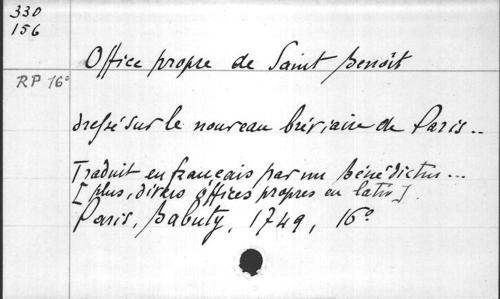 330
156
Office propre de Saint Benoît
RP 16°
dressé sur le nouveau bréviaire de Paris..
Traduit en français par un bénédictin...
[plus, divers offices propres en latin].
Paris, Babuty, 1749, 16°